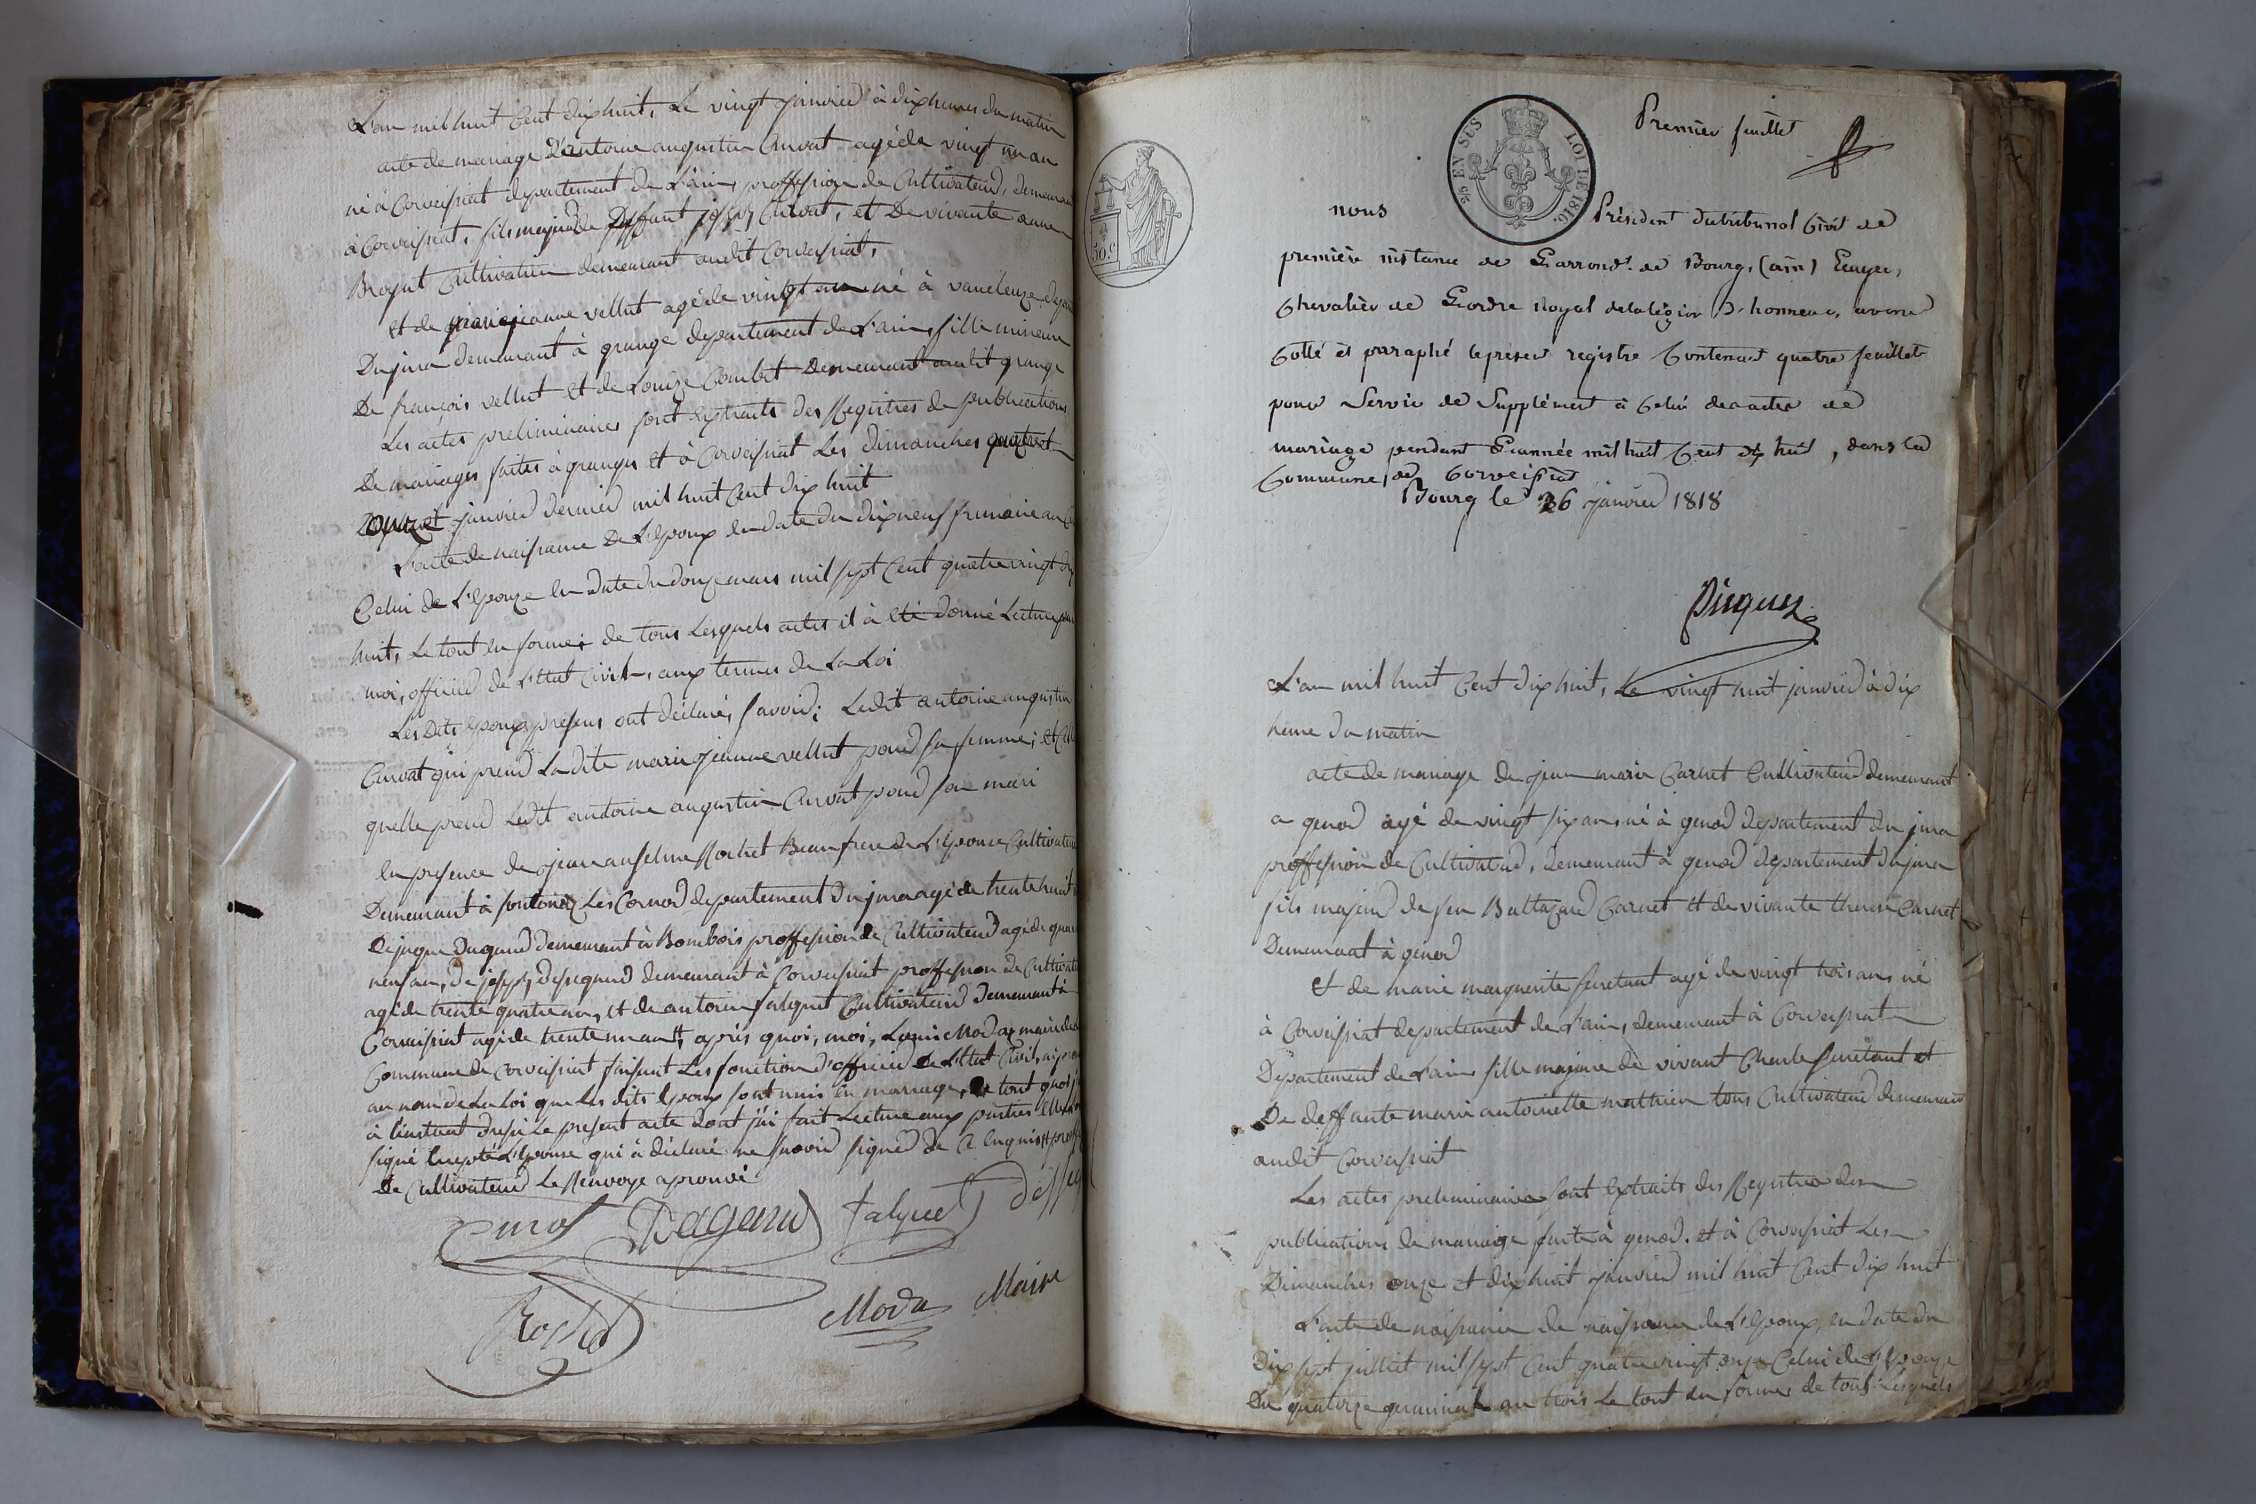 L'an mil huit Cent dix huit, Le vingt janvier à dix heures du matin
acte de mariage d'antoine augustin Curvat agé de vingt un an
né à Corveissiat departement de L'ain, proffession de Cultivateur, demeurant
à Corveissiat, fils majeur de Deffunt joseph Curvat, et De vivante anne
Broyat Cultivatrice demeurant audit Corveissiat,
et de marie jeanne vellut agé de vingt an né à vaucleuze
Du jura demeurant à grange departement de L'ain, fille mineure
De françois vellut et de Louize Combet Demeurant audit grange
Les actes preliminaires sont Extraits des Registres de publications
De mariages faites à granges et à Corveissiat Les dimanches
janvier dernier mil huit Cent dix huit
L'acte de naissance De L'Epoux en date du dix neuf frimaire an
Celui de L'Epouze en date du douze mars mil sept Cent quatre vingt dix
huit, Le tout en forme; de tous Lesquels actes il à été donné Lecture par
moi, officier de L'Etat Civil, aux termes de La Loi
Les Dits Epoux presens ont déclaré, savoir; Ledit antoine augustin
Curvat qu'i prend La dite marie jeanne vellut pour sa femme; et Elle
quelle prend Ledit antoine augustin Curvat pour son mari
En presence de jean anselme Rochet Beau frere de L'Epouse Cultivateur
Demeurant à Les Cornod departement du jura agé de trente huit
De jaque Dagand demeurant à Bombois proffession de Cultivateur agé de
neuf an, De joseph demeurant à Corveissiat proffession de Cultivateur
agé de trente quatre an, et de antoine falquet Cultivateur Demeurant à
Corveissiat agé de trente un an, après quoi, moi, Modas maire de
Commune de Corveissiat faisant Les fonction d'officier De L'Etat Civil, ai
au nom de La Loi que Les dits Epoux sont unis en mariage, de tout quoi
à l'instant dressé Le present acte dont j'ai fait Lecture aux parties
signé Excepté L'Epouse qui à déclaré ne savoir signer de ce Enquis
de Cultivateur Le Renvoye aprouvé
Dagand falquet
Rochet Modas Maire
Premier feuillet
3/5 EN SUS LOI DE 1816.
50 c
nous Président du tribunal Civil de
première instance de L'arrond.t de Bourg, (ain) Ecuyer,
Chevalier de L'ordre Royal de la légion d'honneur, avons
Cotté et paraphé le présent registre Contenant quatre feuillets
pour Servir de Supplément à Celui des actes de
mariage pendant L'année mil huit Cent dix huit, dans la
Commune de Corveissiat
Bourg le 26 janvier 1818
L'an mil huit Cent dix huit, Le vingt huit janvier à dix
heure du matin
acte de mariage de jean marie Carnet Cultivateur demeurant
a genod agé de vingt six ans, né à genod departement du jura
proffession de Cultivateur, demeurant à genod departement du jura
fils majeur de feu Baltazard Carnet et de vivante therese Carnet
Demeurant à genod
Et de marie marguerite furetant agé de vingt trois ans né
à Corveissiat departement de L'ain, demeurant à Corveissiat
Departement de L'ain fille majeure de vivant Charle furetant et
De deffunte marie antoinette mathieu tous Cultivateur demeurant
audit Corveissiat
Les actes preliminaires sont Extraits des Registres des
publications de mariage faite à genod. et à Corveissiat Les
Dimanches onze et dix huit janvier mil huit Cent dix huit
L'acte de naissance de naissance de L'Epoux, en date du
Dix sept juillet mil sept Cent quatre vingt onze Celui de L'Epouze
Du quatorze germinal an trois Le tout en forme, de tous Lesquels